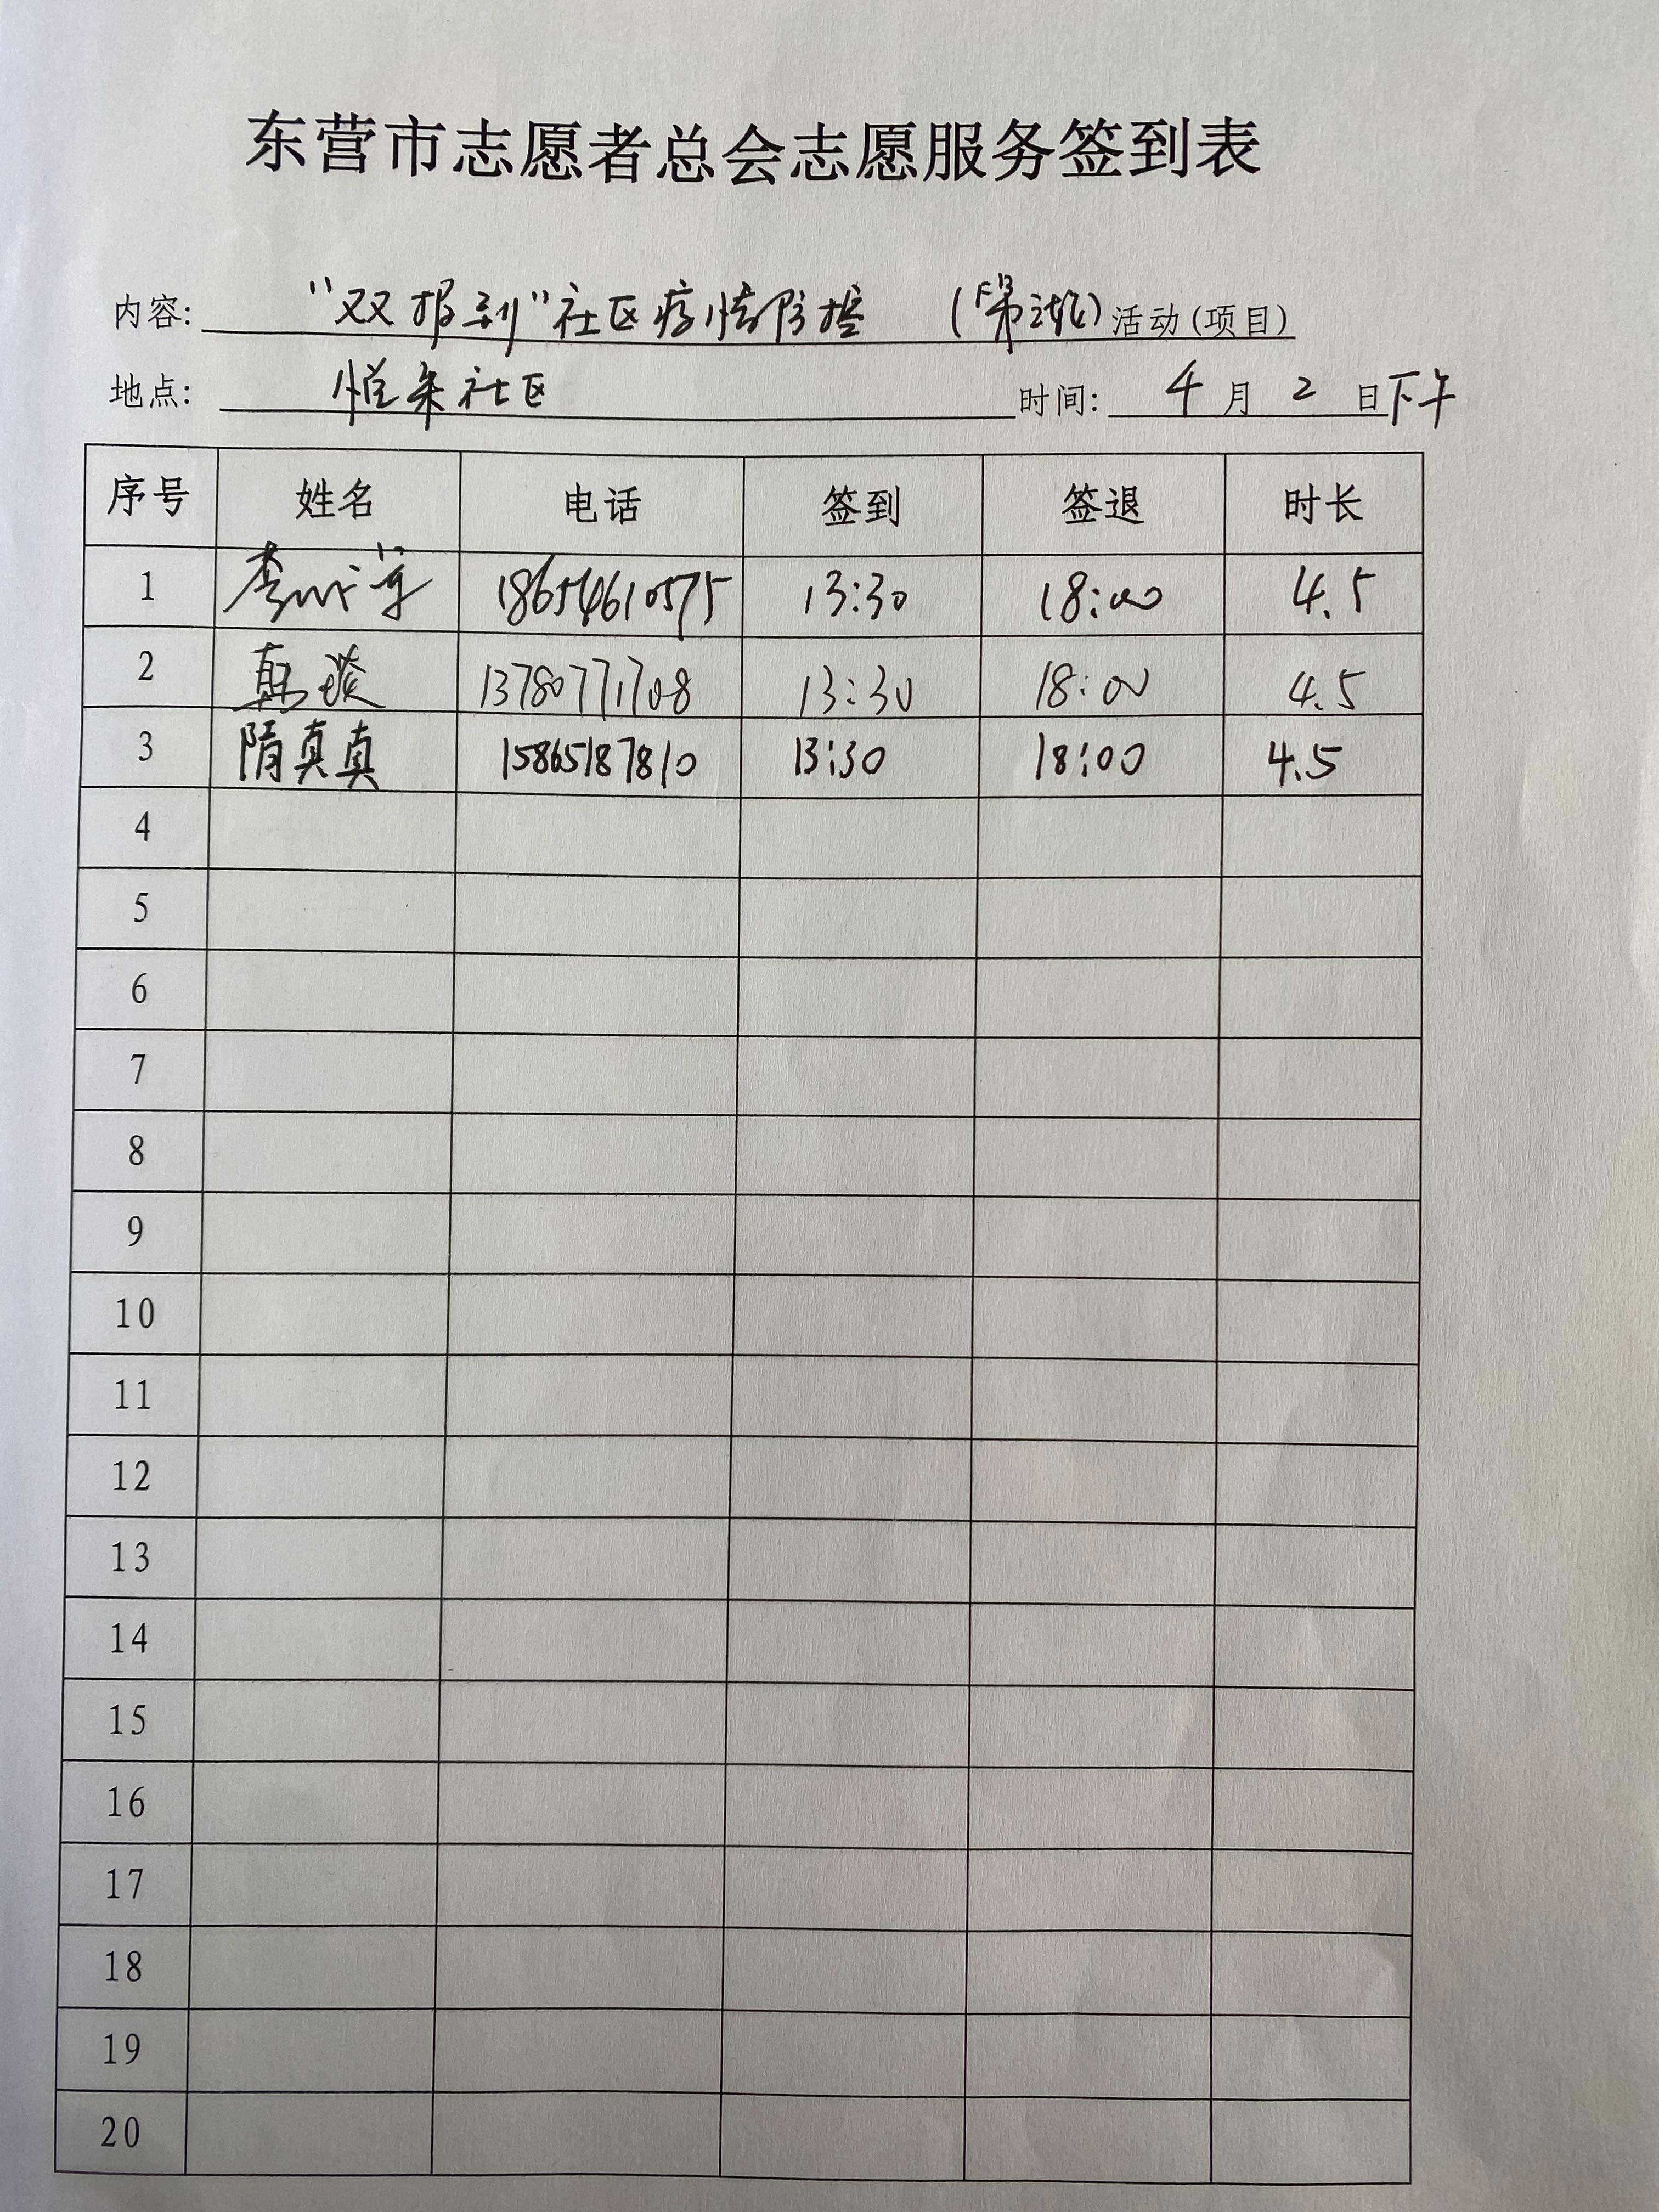 东营市志愿者总会志愿服务签到表
内容: “双报到”社区疫情防控 活动(项目)
地点: 悦来社区 时间: 4 月 2 日下午
序号 姓名 电话 签到 签退 时长
1 李 18654610575 13:30 18:00 4.5
2 韩琰 13780771708 13:30 18:00 4.5
3 隋真真 15865187810 13:30 18:00 4.5
4
5
6
7
8
9
10
11
12
13
14
15
16
17
18
19
20